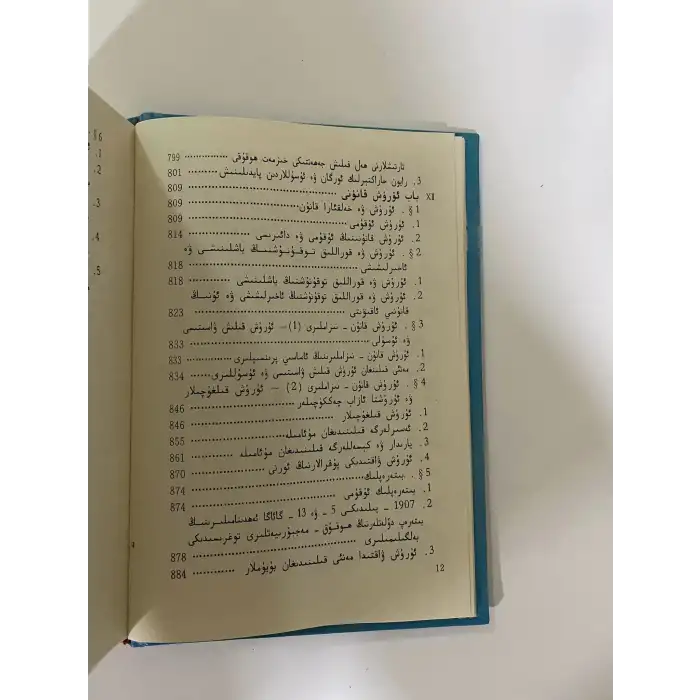 تارتىشلارنى ھەل قىلىش جەھەتتىكى خىزمەت ھوقۇقى ............ 799
3. رايون خاراكتېرلىك ئورگان ۋە ئۇسۇللاردىن پايدىلىنىش ............ 801
XI باب ئۇرۇش قانۇنى ............ 809
1 §. ئۇرۇش ۋە خەلقئارا قانۇن ............ 809
1. ئۇرۇش ئۇقۇمى ............ 809
2. ئۇرۇش قانۇنىنىڭ ئۇقۇمى ۋە دائىرىسى ............ 814
2 §. ئۇرۇش ۋە قوراللىق توقۇنۇشنىڭ باشلىنىشى ۋە
ئاخىرلىشىشى ............ 818
1. ئۇرۇش ۋە قوراللىق توقۇنۇشنىڭ باشلىنىشى ............ 818
2. ئۇرۇش ۋە قوراللىق توقۇنۇشنىڭ ئاخىرلىشىشى ۋە ئۇنىڭ
قانۇنىي ئاقىۋىتى ............ 823
3 §. ئۇرۇش قانۇن ـ نىزاملىرى (1) — ئۇرۇش قىلىش ۋاستىسى
ۋە ئۇسۇلى ............ 833
1. ئۇرۇش قانۇن ـ نىزاملىرىنىڭ ئاساسىي پرىنسىپلىرى ............ 833
2. مەنئى قىلىنغان ئۇرۇش قىلىش ۋاستىسى ۋە ئۇسۇللىرى ............ 834
4 §. ئۇرۇش قانۇن ـ نىزاملىرى (2) — ئۇرۇش قىلغۇچىلار
ۋە ئۇرۇشتا ئازاب چەككۈچىلەر ............ 846
1. ئۇرۇش قىلغۇچىلار ............ 846
2. ئەسىرلەرگە قىلىنىدىغان مۇئامىلە ............ 855
3. يارىدار ۋە كېسەللەرگە قىلىنىدىغان مۇئامىلە ............ 861
4. ئۇرۇش ۋاقتىدىكى پۇقرالارنىڭ ئورنى ............ 870
5 §. بىتەرەپلىك ............ 874
1. بىتەرەپلىك ئۇقۇمى ............ 874
2. 1907 ـ يىلىدىكى 5 ـ ۋە 13 ـ گائاگا ئەھدىنامىلىرىنىڭ
بىتەرەپ دۆلەتلەرنىڭ ھوقۇق ـ مەجبۇرىيەتلىرى توغرىسىدىكى
بەلگىلىمىلىرى ............ 878
3. ئۇرۇش ۋاقتىدا مەنئى قىلىنىدىغان بۇيۇملار ............ 884
12
§ 6
1.
2.
3.
4.
5.
4